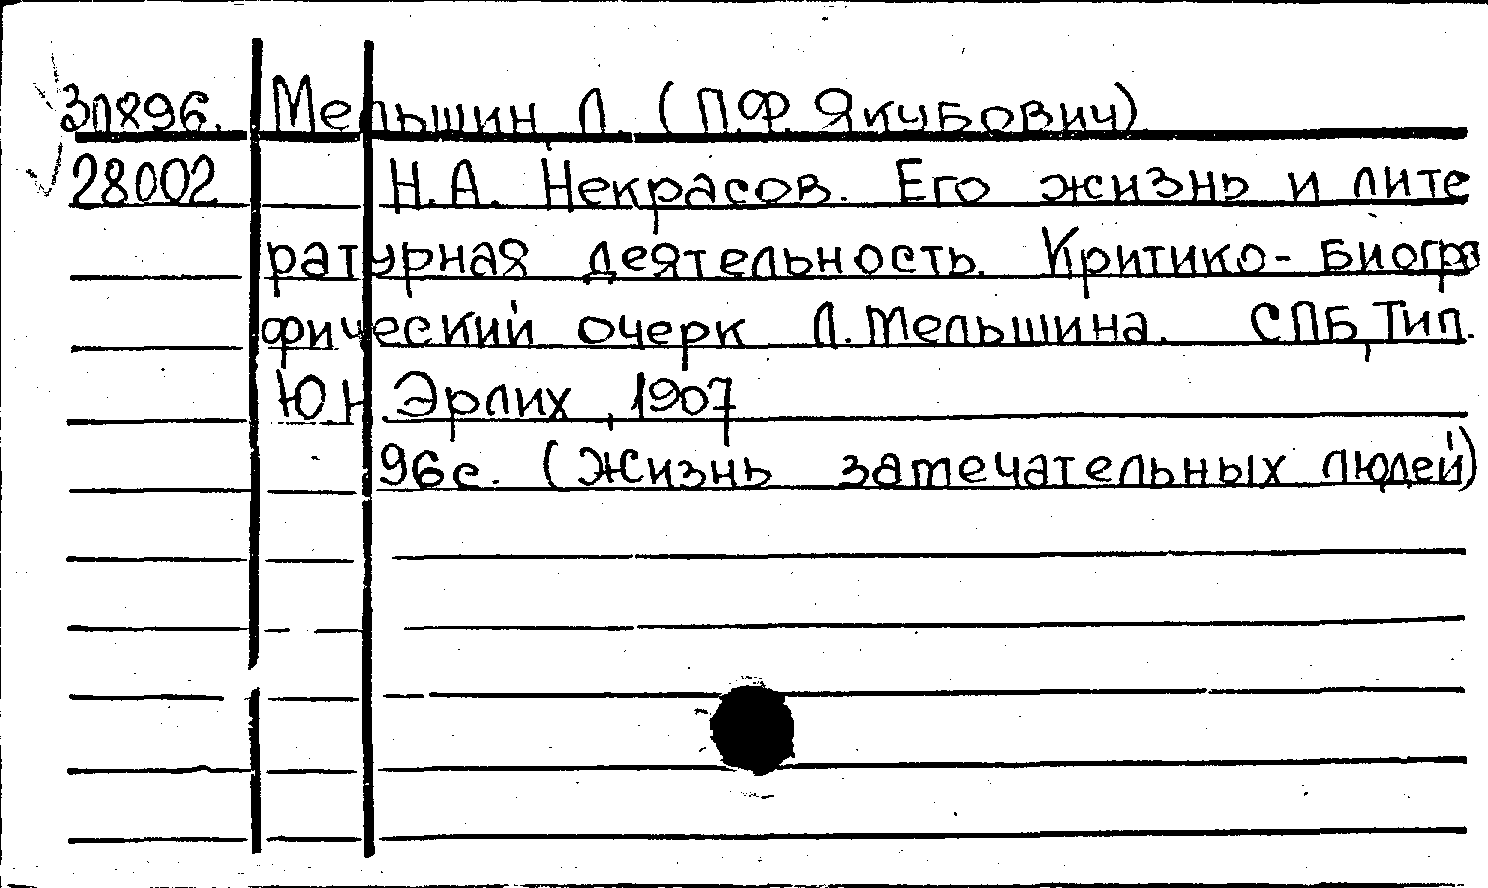 Зл896. Мельшин Л. (П.Ф. Якубович)
28002 Н.А. Некрасов. Его жизнь и лите
ратурная деятельность. Критико-биогра
фический очерк Л. Мельшина. СПБ, Тип.
Ю.Н. Эрлих, 1907
96с. (Жизнь замечательных людей)